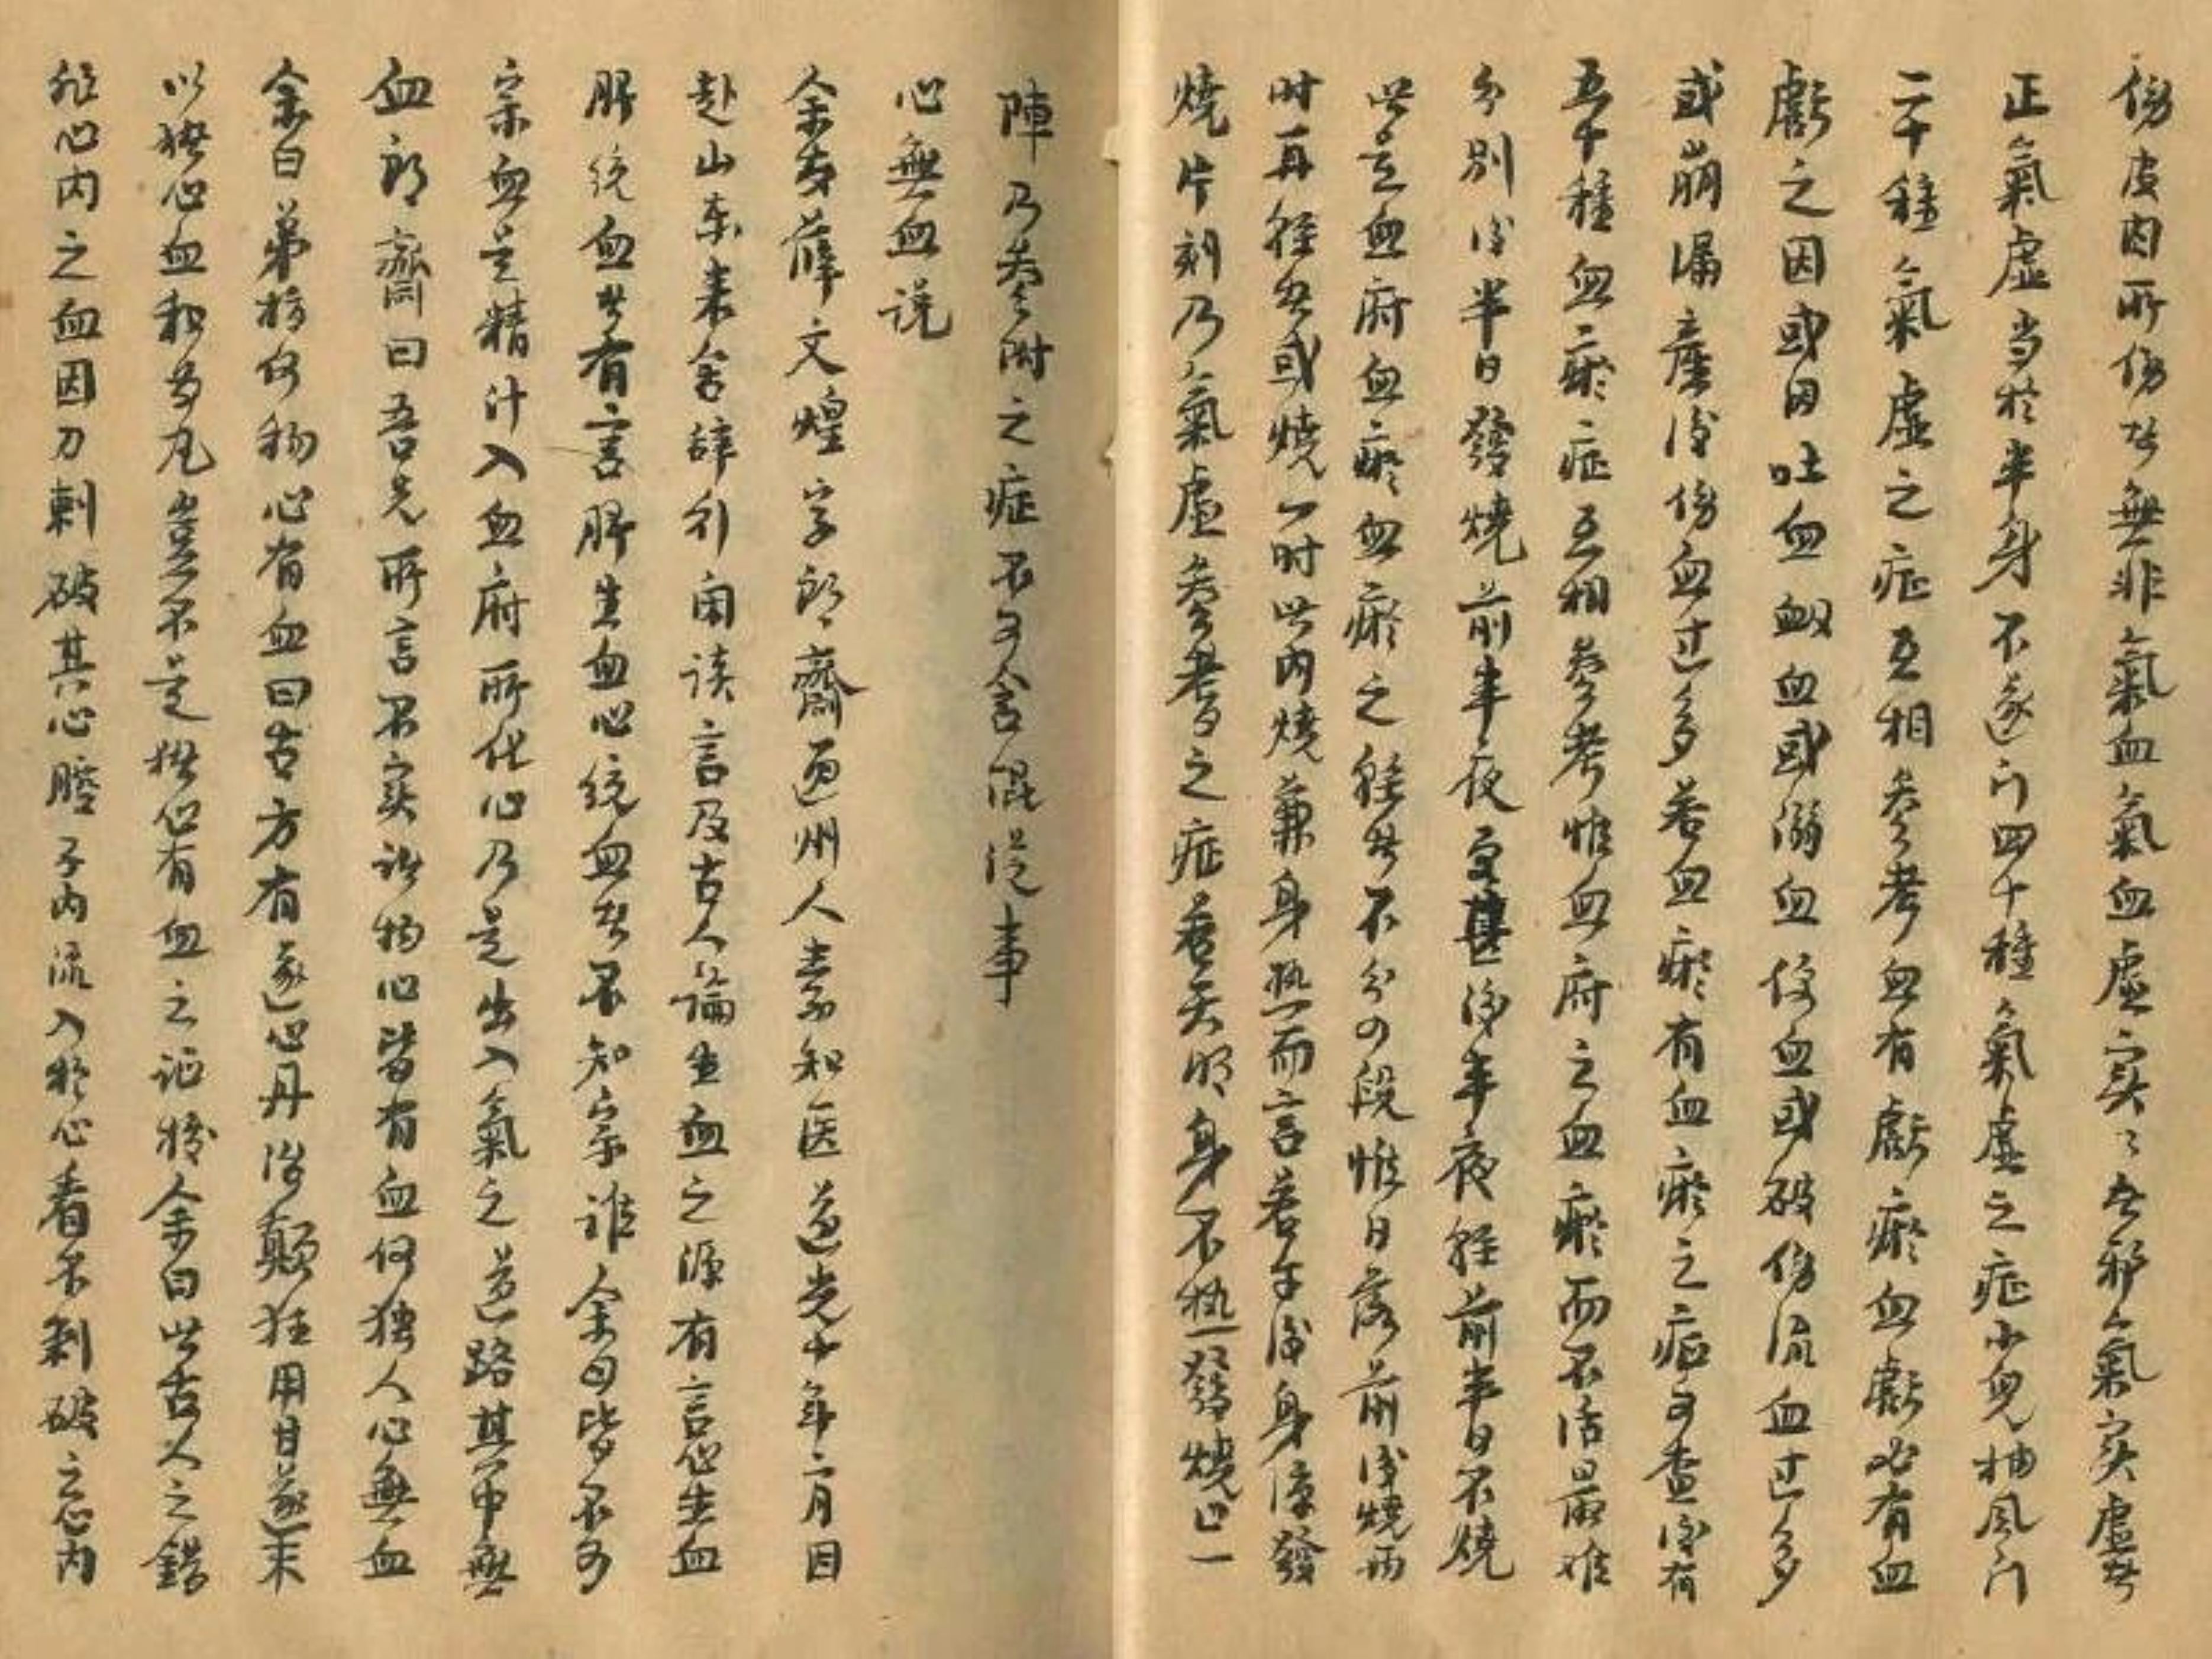 傷皮肉所傷者無非氣血氣血虛实〻者邪氣实虛者
正氣虛当於半身不遂门四十種氣虛之症小兒抽风门
二十種氣虛之症互相参考血有虧瘀血虧必有血
虧之因或因吐血衄血或溺血便血或破伤流血过多
或崩漏產後伤血过多若血瘀有血瘀之症可查後有
五十種血瘀症互相参考惟血府之血瘀而不活最难
分别後半日發燒前半夜更甚後半夜轻前半日不燒
此是血府血瘀血瘀之轻者不分四段惟日落前後燒两
时再轻者或燒一时此内燒兼身热而言若午後身凉發
燒片刻乃氣虛参耆之症若天明身不热發燒止一
陣乃参附之症不可含混从事
心無血说
余友薛文煌字朗齋通州人素知医道光十年二月因
赴山东来舍辞行闲谈言及古人論生血之源有言心生血
脾统血者有言脾生血心统血者不知宗谁余曰皆不可
宗血是精汁入血府所化心乃是出入氣之道路其中無
血朗齋曰吾兄所言不实诸物心皆有血何独人心無血
余曰弟指何物心有血曰古方有遂心丹治癫狂用甘遂末
以猪心血和为丸岂不是猪心有血之证据余曰此古人之錯
非心内之血因刀刺破其心腔子内流入於心看不刺破之心内